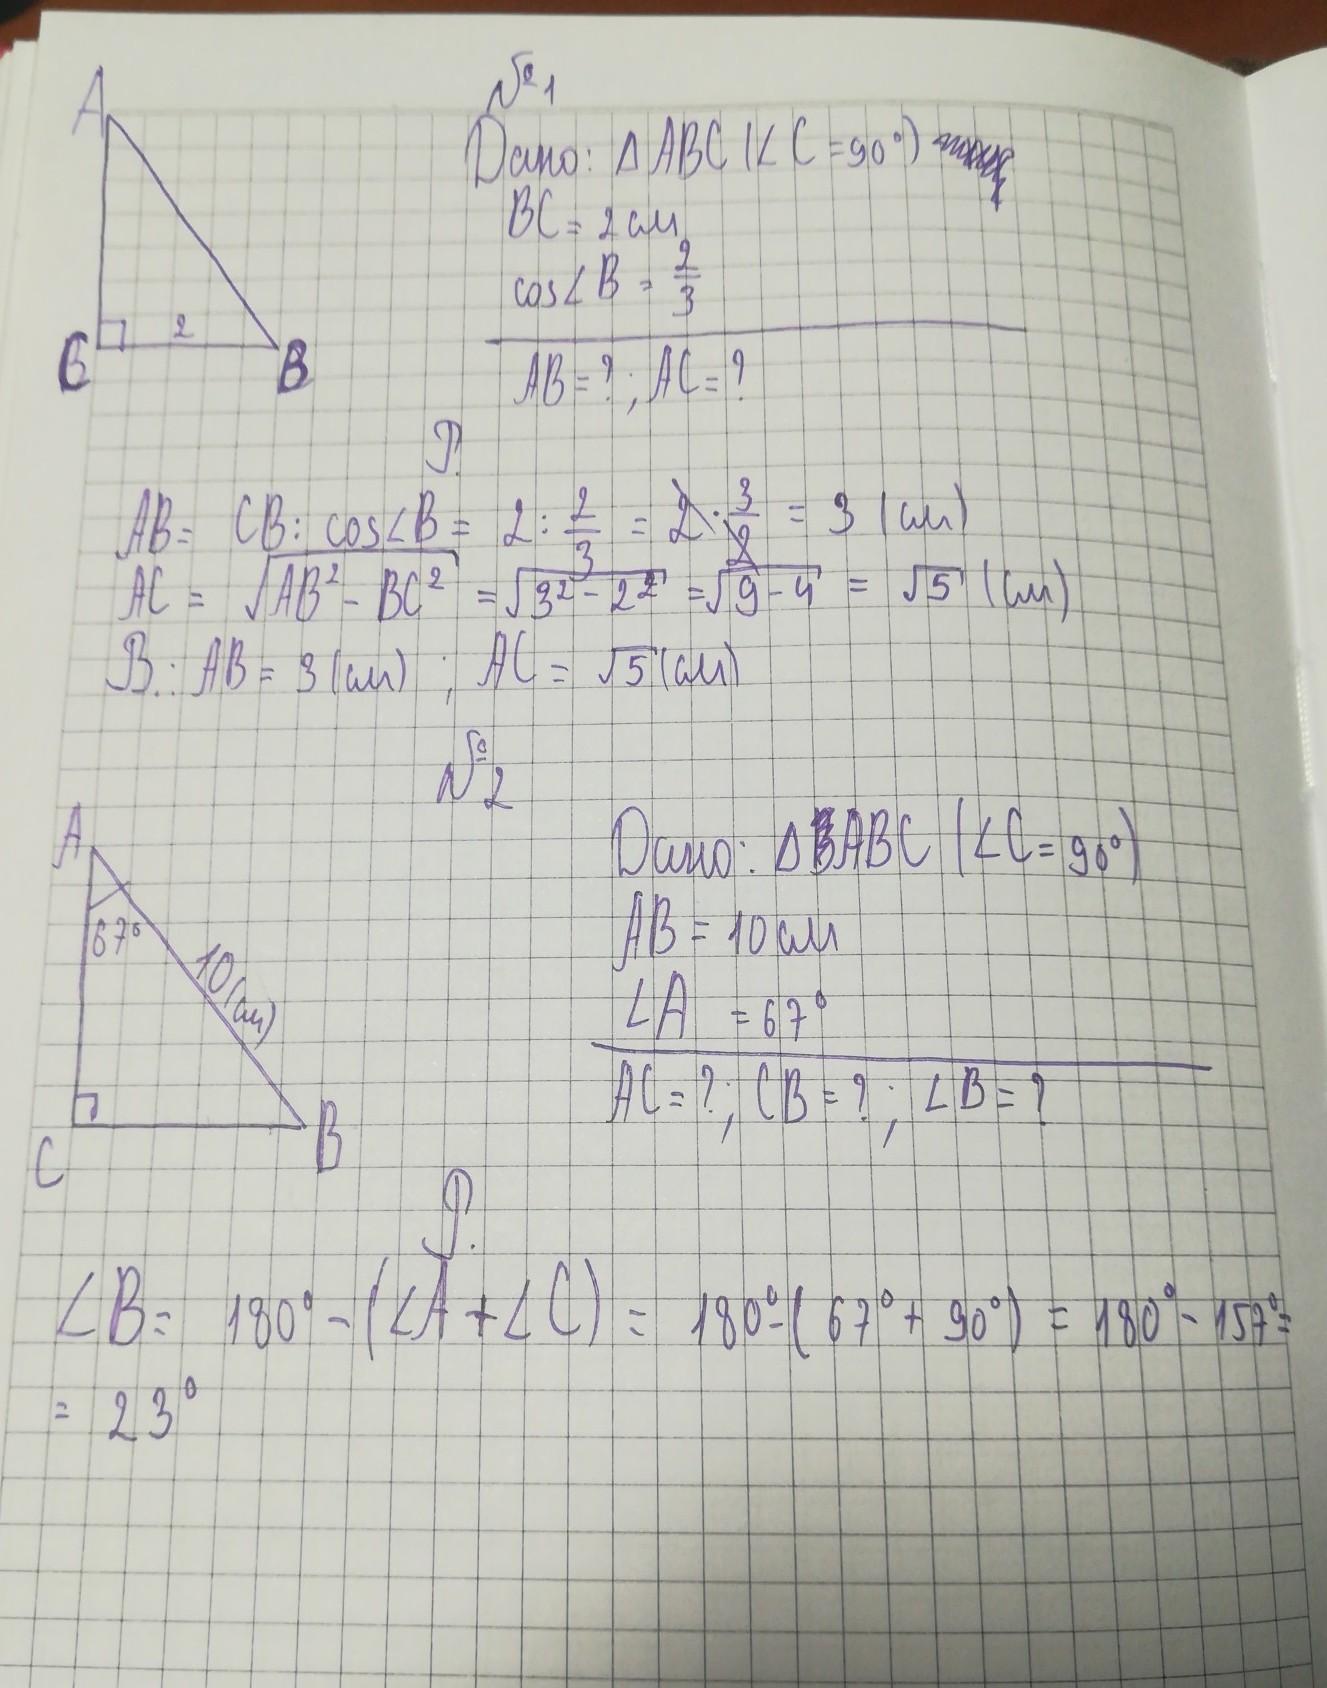 №1
A
Дано: △ABC (∠C=90°)
BC = 2 см
cos∠B = 2/3
2
C
B
AB=?; AC=?
Р.
AB= CB: cos∠B = 2 : 2/3 = 2 · 3/2 = 3 (см)
AC = √AB² - BC² = √3² - 2² = √9 - 4 = √5 (см)
В.: AB = 3 (см) ; AC = √5 (см)
№2
A
67°
10(см)
C
B
Дано: △ABC (∠C=90°)
AB = 10 см
∠A = 67°
AC=?; CB=?; ∠B=?
Р.
∠B= 180° - (∠A+∠C) = 180°-(67°+ 90°) = 180° - 157°=
= 23°